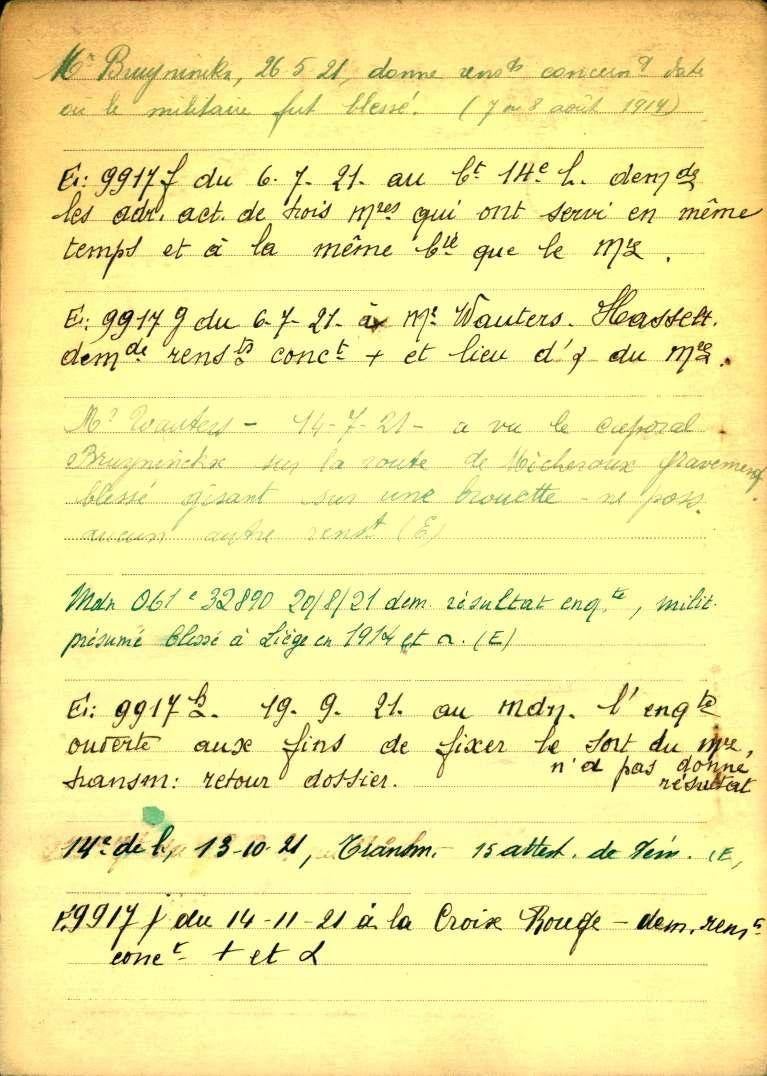 Mr Bruyninckx, 26-5-21, donne rensts concernt date
où le militaire fut blessé. (7 ou 8 août 1914)
E: 9917 f du 6-7-21. au bt 14e L. demde
les adr. act. de trois mres qui ont servi en même
temps et à la même bie que le mre.
E: 9917 g du 6-7-21. à Mr Wauters. Hasselt.
demde rensts conct + et lieu d' du mre.
Mr Wauters - 14-7-21 - a vu le caporal
Bruyninckx sur la route de Micheroux gravement
blessé gisant sur une brouette - ne poss.
aucun autre renst (E)
Mdn 061 e 32890 20/8/21 dem. résultat enqte, milit.
présumé blessé à Liége en 1914 et . (E)
E: 9917 h. 19. 9. 21. au mdn. l'enqte
ouverte aux fins de fixer le sort du mre,
n'a pas donné
transm: retour dossier.
résultat
14e de L, 13-10-21, Transm. 15 attest. de tém. (E)
E. 9917 j du 14-11-21 à la Croix Rouge - dem. renst
conct + et